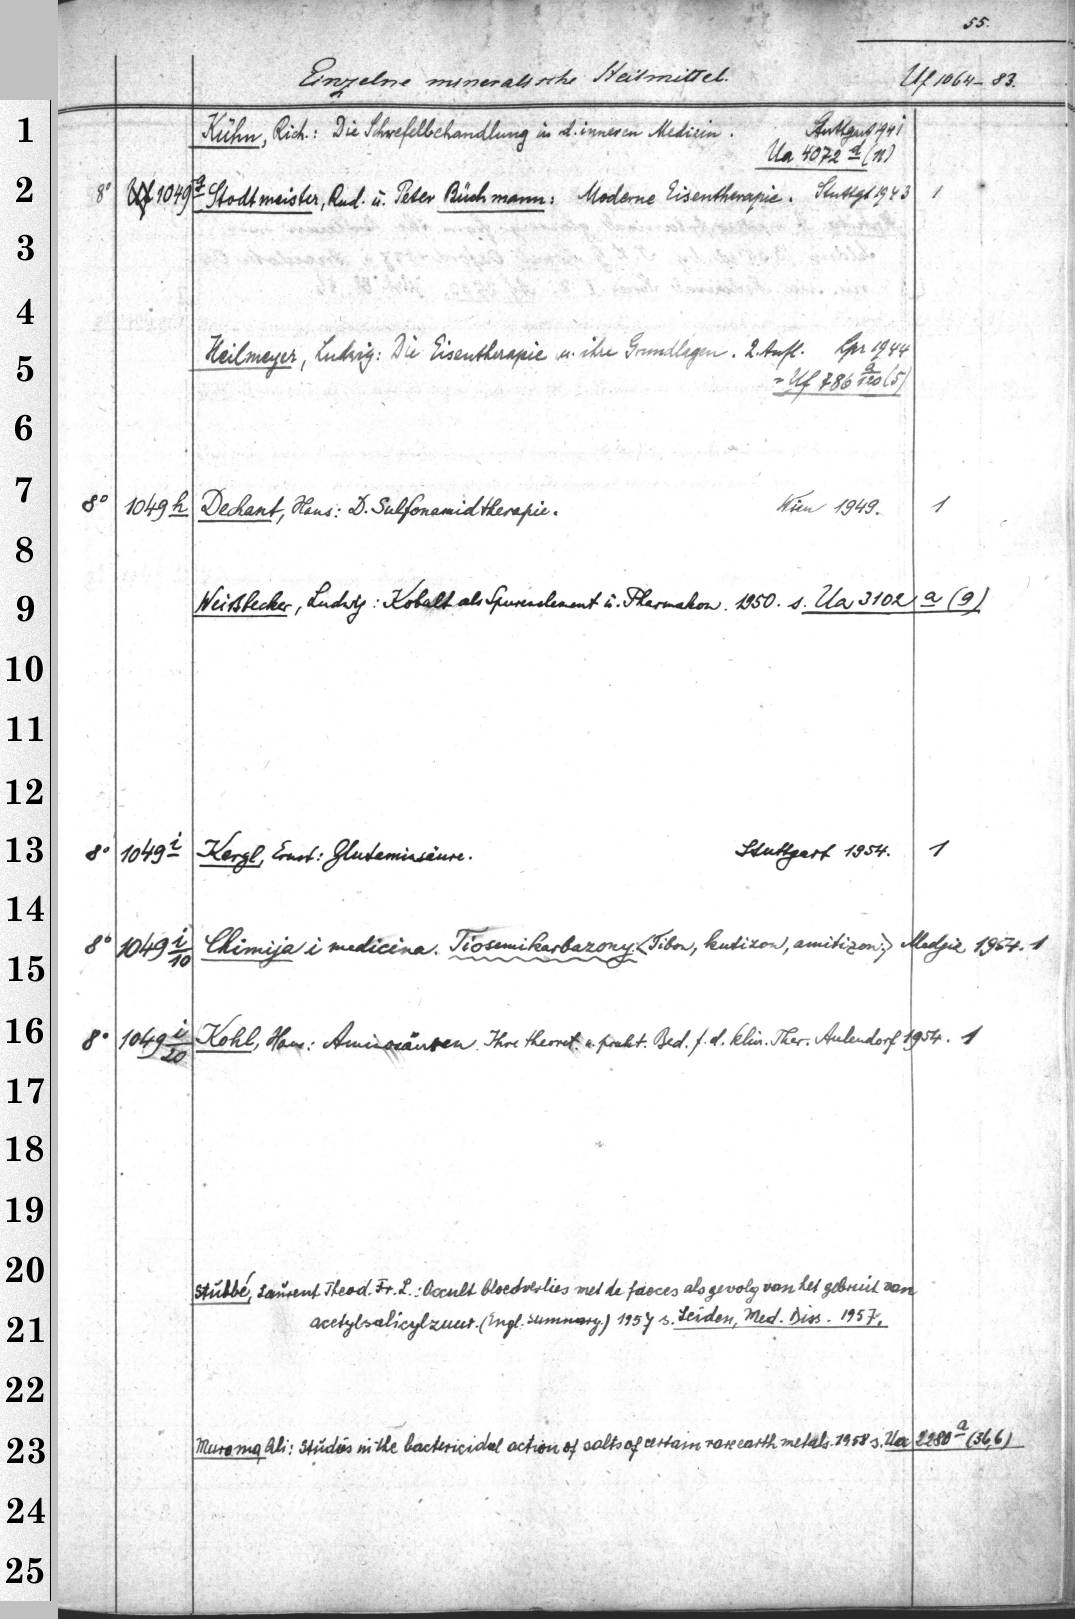 55.
Einzelne mineralische Heilmittel. Uf 1064-83.
1 Kühn, Rich.: Die Schwefelbehandlung in d. inneren Medicin. Stuttgart 1941
Ua 4072 a (11)
2 8° Uf 1049 g Stodtmeister, Rud. u. Peter Büchmann: Moderne Eisentherapie. Stuttgt 1943 1
3
4
Heilmeyer, Ludwig: Die Eisentherapie u. ihre Grundlagen. 2. Aufl. Lpz 1944
5 = Uf 786 a/120 (5)
6
7 8° 1049 h Dechant, Hans: D. Sulfonamidtherapie. Wien 1949. 1
8
9 Weißbecker, Ludwig: Kobalt als Spurenelement u. Pharmakon. 1950. s. Ua 3102 a (9)
10
11
12
13 8° 1049 i Kergl, Ernst: Glutaminsäure. Stuttgart 1954. 1
14
8° 1049 i/10 Chimija i medicina. Tiosemikarbazony <Tibon, kutizon, amitizon.> Medgiz 1954. 1
15
16 8° 1049 i/20 Kohl, Hans: Aminosäuren. Ihre theoret. u. prakt. Bed. f. d. klin. Ther. Aulendorf 1954. 1
17
18
19
20
Stubbé, Laurent Theod. Fr. L.: Occult bloedverlies met de faeces als gevolg van het gebruik van
21 acetylsalicylzuur. (Engl. summary.) 1957 s. Leiden, Med. Diss. 1957.
22
23 Muroma, Ali: Studies in the bactericidal action of salts of certain rare earth metals. 1958 s. Ua 2280 a (36,6)
24
25